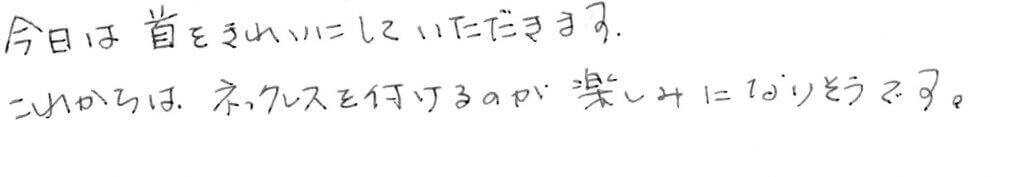 今日は首をきれいにしていただきます.
これからは、ネックレスを付けるのが楽しみになりそうです。